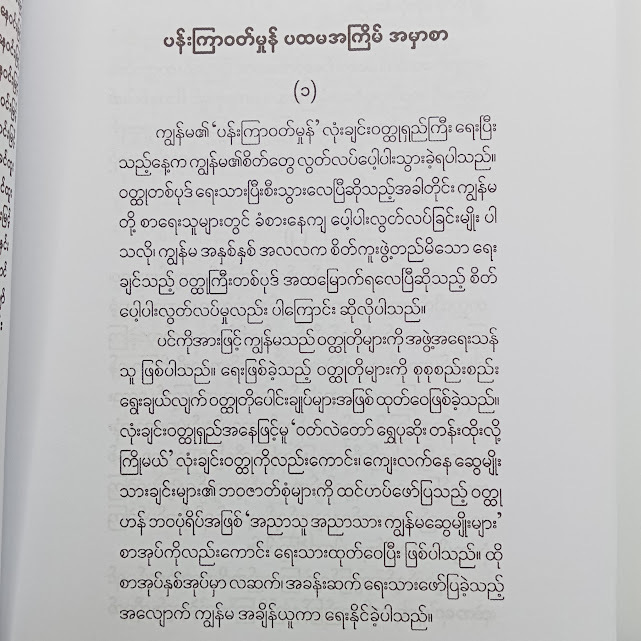 ပန်းကြာဝတ်မှုန် ပထမအကြိမ် အမှာစာ
(၁)
ကျွန်မ၏ ‘ပန်းကြာဝတ်မှုန်’ လုံးချင်းဝတ္ထုရှည်ကြီး ရေးပြီး
သည့်နေ့က ကျွန်မ၏စိတ်တွေ လွတ်လပ်ပေါ့ပါးသွားခဲ့ရပါသည်။
ဝတ္ထုတစ်ပုဒ် ရေးသားပြီးစီးသွားလေပြီဆိုသည့်အခါတိုင်း ကျွန်မ
တို့ စာရေးသူများတွင် ခံစားနေကျ ပေါ့ပါးလွတ်လပ်ခြင်းမျိုး ပါ
သလို၊ ကျွန်မ အနှစ်နှစ် အလလက စိတ်ကူးဖွဲ့တည်မိသော ရေး
ချင်သည့် ဝတ္ထုကြီးတစ်ပုဒ် အထမြောက်ရလေပြီဆိုသည့် စိတ်
ပေါ့ပါးလွတ်လပ်မှုလည်း ပါကြောင်း ဆိုလိုပါသည်။
ပင်ကိုအားဖြင့် ကျွန်မသည် ဝတ္ထုတိုများကို အဖွဲ့အရေးသန်
သူ ဖြစ်ပါသည်။ ရေးဖြစ်ခဲ့သည့် ဝတ္ထုတိုများကို စုစုစည်းစည်း
ရွေးချယ်လျက် ဝတ္ထုတိုပေါင်းချုပ်များအဖြစ် ထုတ်ဝေဖြစ်ခဲ့သည်။
လုံးချင်းဝတ္ထုရှည်အနေဖြင့်မူ ‘ဝတ်လဲတော် ရွှေပုဆိုး တန်းထိုးလို့
ကြိုမယ်’ လုံးချင်းဝတ္ထုကိုလည်းကောင်း၊ ကျေးလက်နေ ဆွေမျိုး
သားချင်းများ၏ ဘဝဇာတ်စုံများကို ထင်ဟပ်ဖော်ပြသည့် ဝတ္ထု
ဟန် ဘဝပုံရိပ်အဖြစ် ‘အညာသူ အညာသား ကျွန်မဆွေမျိုးများ’
စာအုပ်ကိုလည်းကောင်း ရေးသားထုတ်ဝေပြီး ဖြစ်ပါသည်။ ထို
စာအုပ်နှစ်အုပ်မှာ လဆက်၊ အခန်းဆက် ရေးသားဖော်ပြခဲ့သည့်
အလျောက် ကျွန်မ အချိန်ယူကာ ရေးနိုင်ခဲ့ပါသည်။